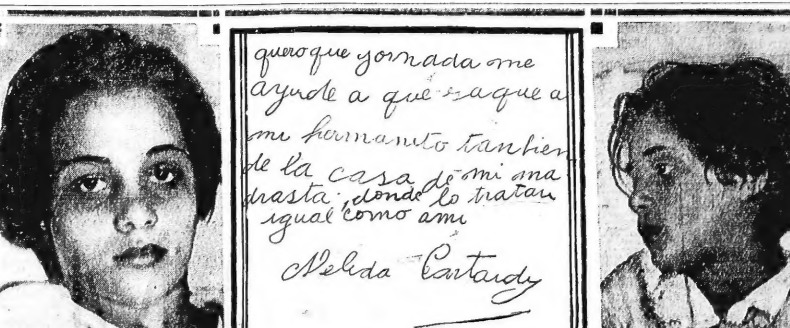 quero que yornada me
ayude a que saque a
mi hermanito tanbien
de la casa de mi ma
drasta, donde lo tratan
igual como ami
Nelida